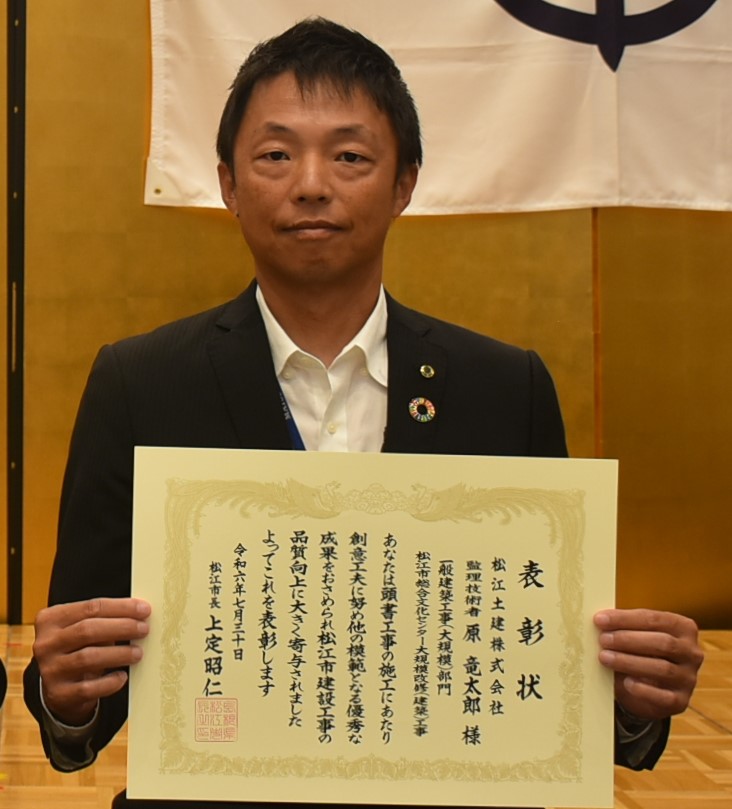 表彰状
松江土建株式会社
監理技術者 原 竜太郎 様
一般建築工事(大規模)部門
松江市総合文化センター大規模改修(建築)工事
あなたは頭書工事の施工にあたり
創意工夫に努め他の模範となる優秀な
成果をおさめられ松江市建設工事の
品質向上に大きく寄与されました
よってこれを表彰します
令和六年七月三十日
松江市長 上定昭仁